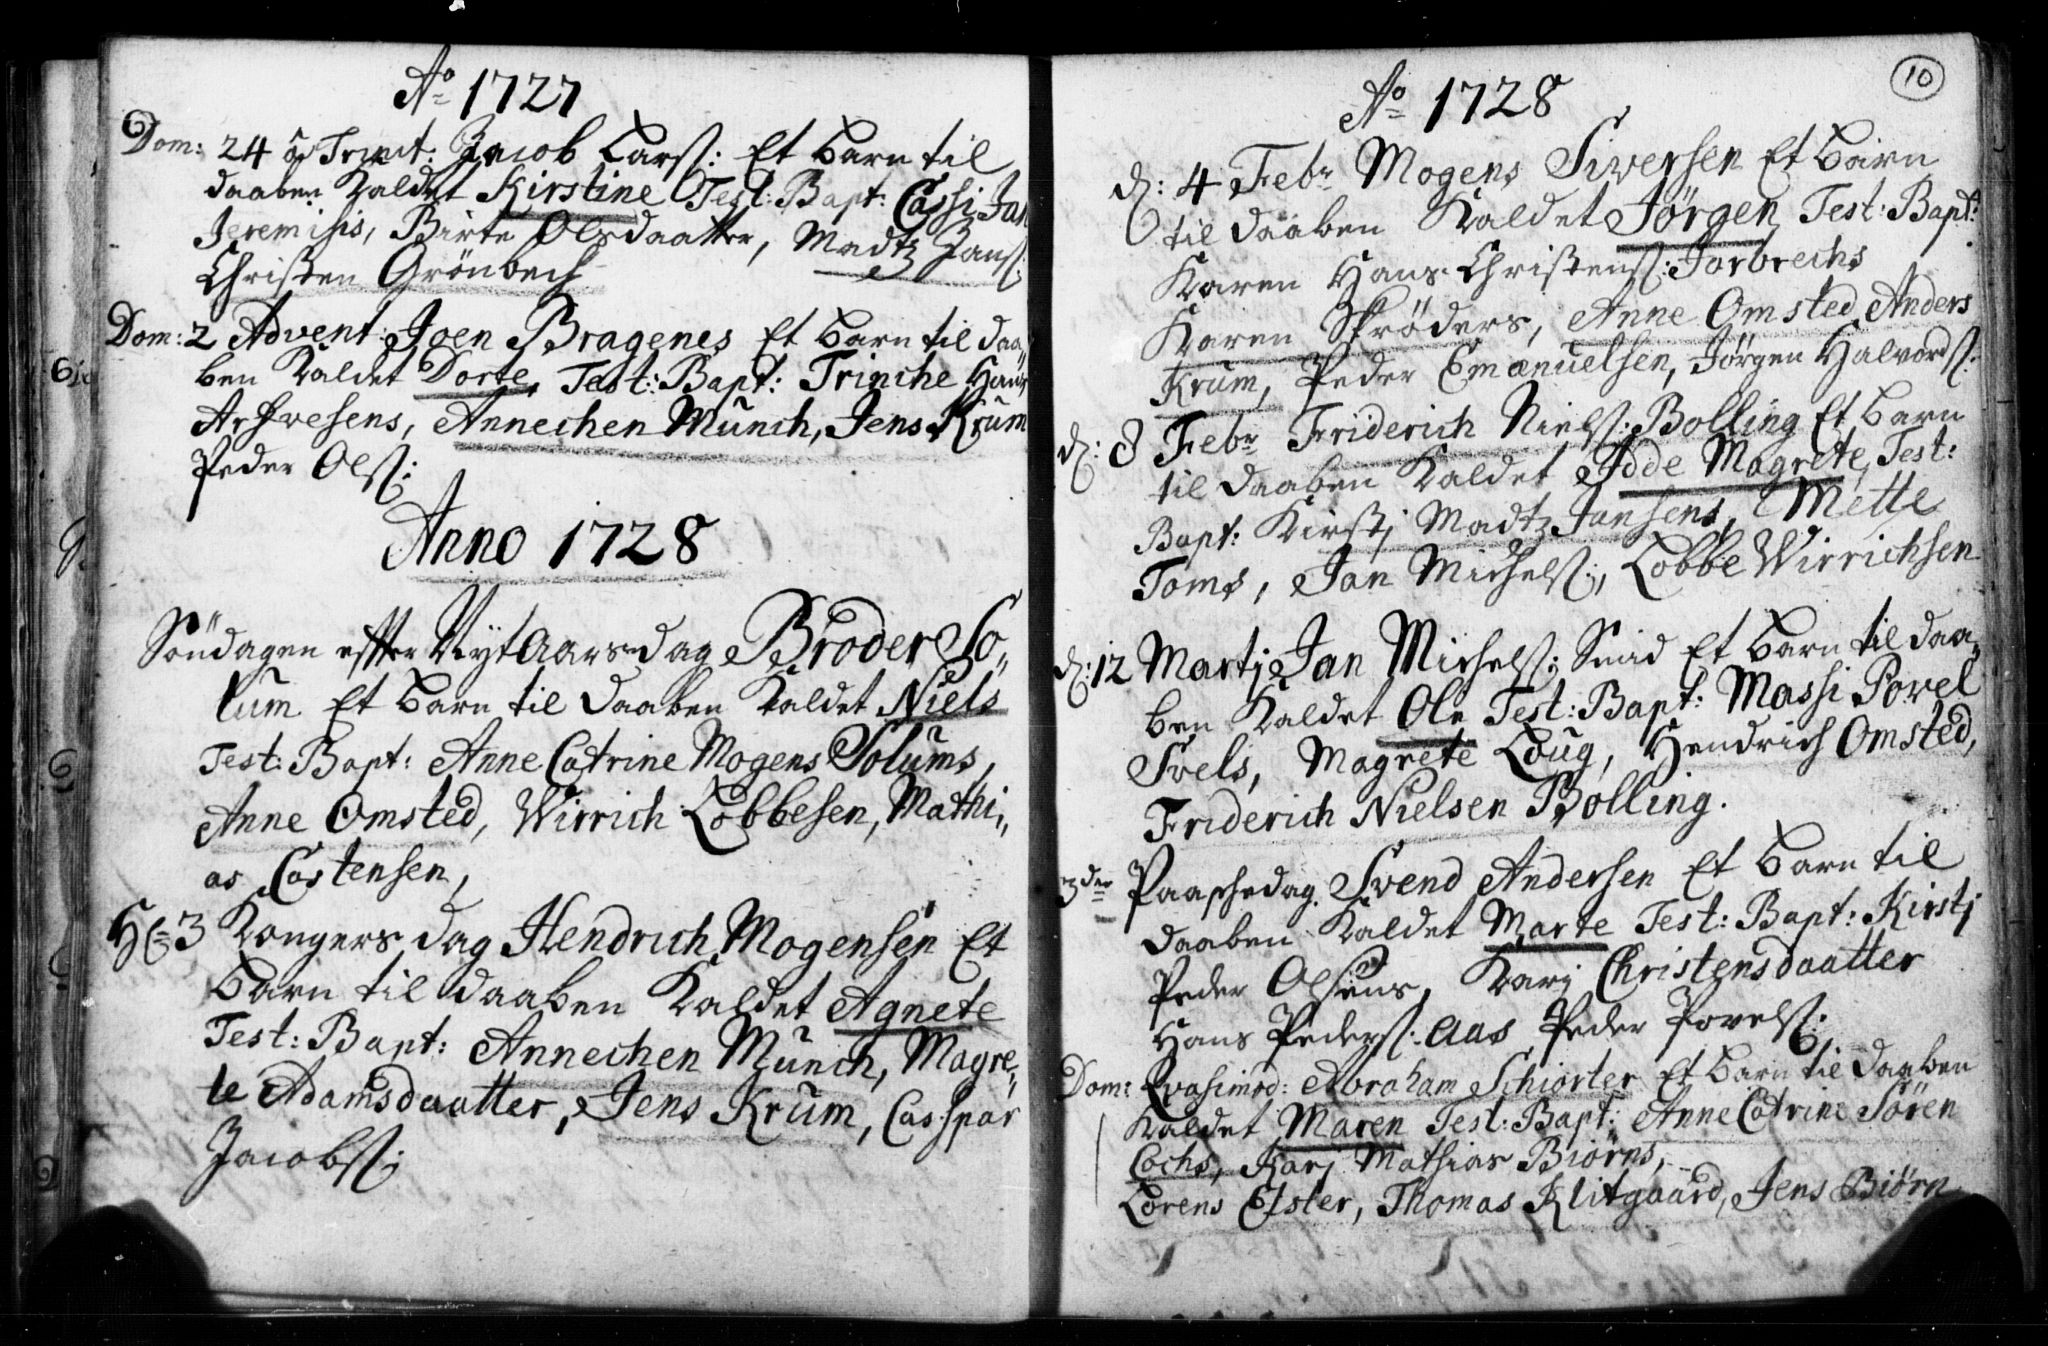 Ao 1727
Dom: 24 p Trinit: Jacob Larss: Et barn til
daaben kaldet Kirstine Test: Bapt: Cassi Jan
Jeremisis, Birte Olsdaatter, Madtz Janss:
Christen Grönbech
Dom: 2 Advent Joen Bragenes Et barn til daa„
ben kaldet Dorte, Test: Bapt: Trinche Hans
Arfvesens, Annechen Münch, Jens Krum
Peder Olss:
Anno 1728
Söndagen effter Nyt Aarsdag Broder So„
lum Et barn til daaben kaldet Niels
Test: Bapt: Anne Catrine Mogens Solums,
Anne Omsted, Wirrich Lobbesen, Mathi„
as Castensen,
H: 3 Kongers dag Hendrich Mogensen Et
barn til daaben kaldet Agnete
Test: Bapt: Annechen Münch, Magre„
te Adamsdaatter, Jens Krum, Casspar
Jacobss:
10
Ao 1728
d: 4 Febr Mogens Siversen Et barn
til daaben kaldet Jörgen Test: Bapt:
Karen Hans Christenss: Torbrechs
Karen Skröders, Anne Omsted Anders
Krum, Peder Emanuelsen, Jörgen Halvordss:
d: 8 Febr Friderich Nielss: Bolling Et barn
til daaben kaldet Adde Magrete, Test:
Bapt: Kirstj Madtz Jansens, Mette
Toms, Jan Michelss:, Lobbe Wirrichsen
d: 12 Martj Jan Michelss: Smid Et barn til daa„
ben kaldet Ole Test: Bapt: Massi Povel
Svels, Magrete Loug, Hendrich Omsted,
Friderich Nielsen Bolling.
3die Paaschedag Svend Andersen Et barn til
daaben kaldet Marte Test: Bapt: Kirstj
Peder Olsens, Karj Christensdaatter
Hans Pederss: Aas Peder Povelss:
Dom: Qvasimod: Abraham Schiorter Et barn til daaben
kaldet Maren Test: Bapt: Anne Catrine Sören
Cochs, Karj Mathias Biörns,
Lorens Elster, Thomas Klitgaard, Jens Biörn